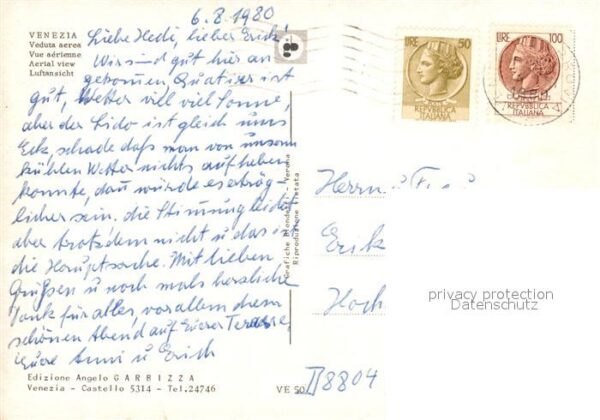 6.8.1980
VENEZIA
Veduta aerea
Vue aérienne
Aerial view
Luftansicht
Liebe Hedi, lieber Erik!
Wir sind gut hier an
gekommen, Quatier ist
gut, Wetter viel viel Sonne,
aber der Lido ist gleich ums
Eck, schade dass man von unserm
kühlen Wetter nichts aufheben
konnte, dann würde es erträg-
licher sein. die Stimmung leidet
aber trotzdem nicht u das ist
die Hauptsache. Mit lieben
Grüßen u noch mals herzliche
Dank für alles, vor allem dem
schönen Abend auf Eurer Terasse,
Eure Anni u Erich
Edizione Angelo GARBIZZA
Venezia - Castello 5314 - Tel.24746
VE 50
Grafiche Biondetti - Verona
Riproduzione Vietata
LIRE 50
REPVBBLICA
ITALIANA
LIRE 100
REPVBBLICA
ITALIANA
Herrn u
Erik
Hoch
privacy protection
Datenschutz
II8804